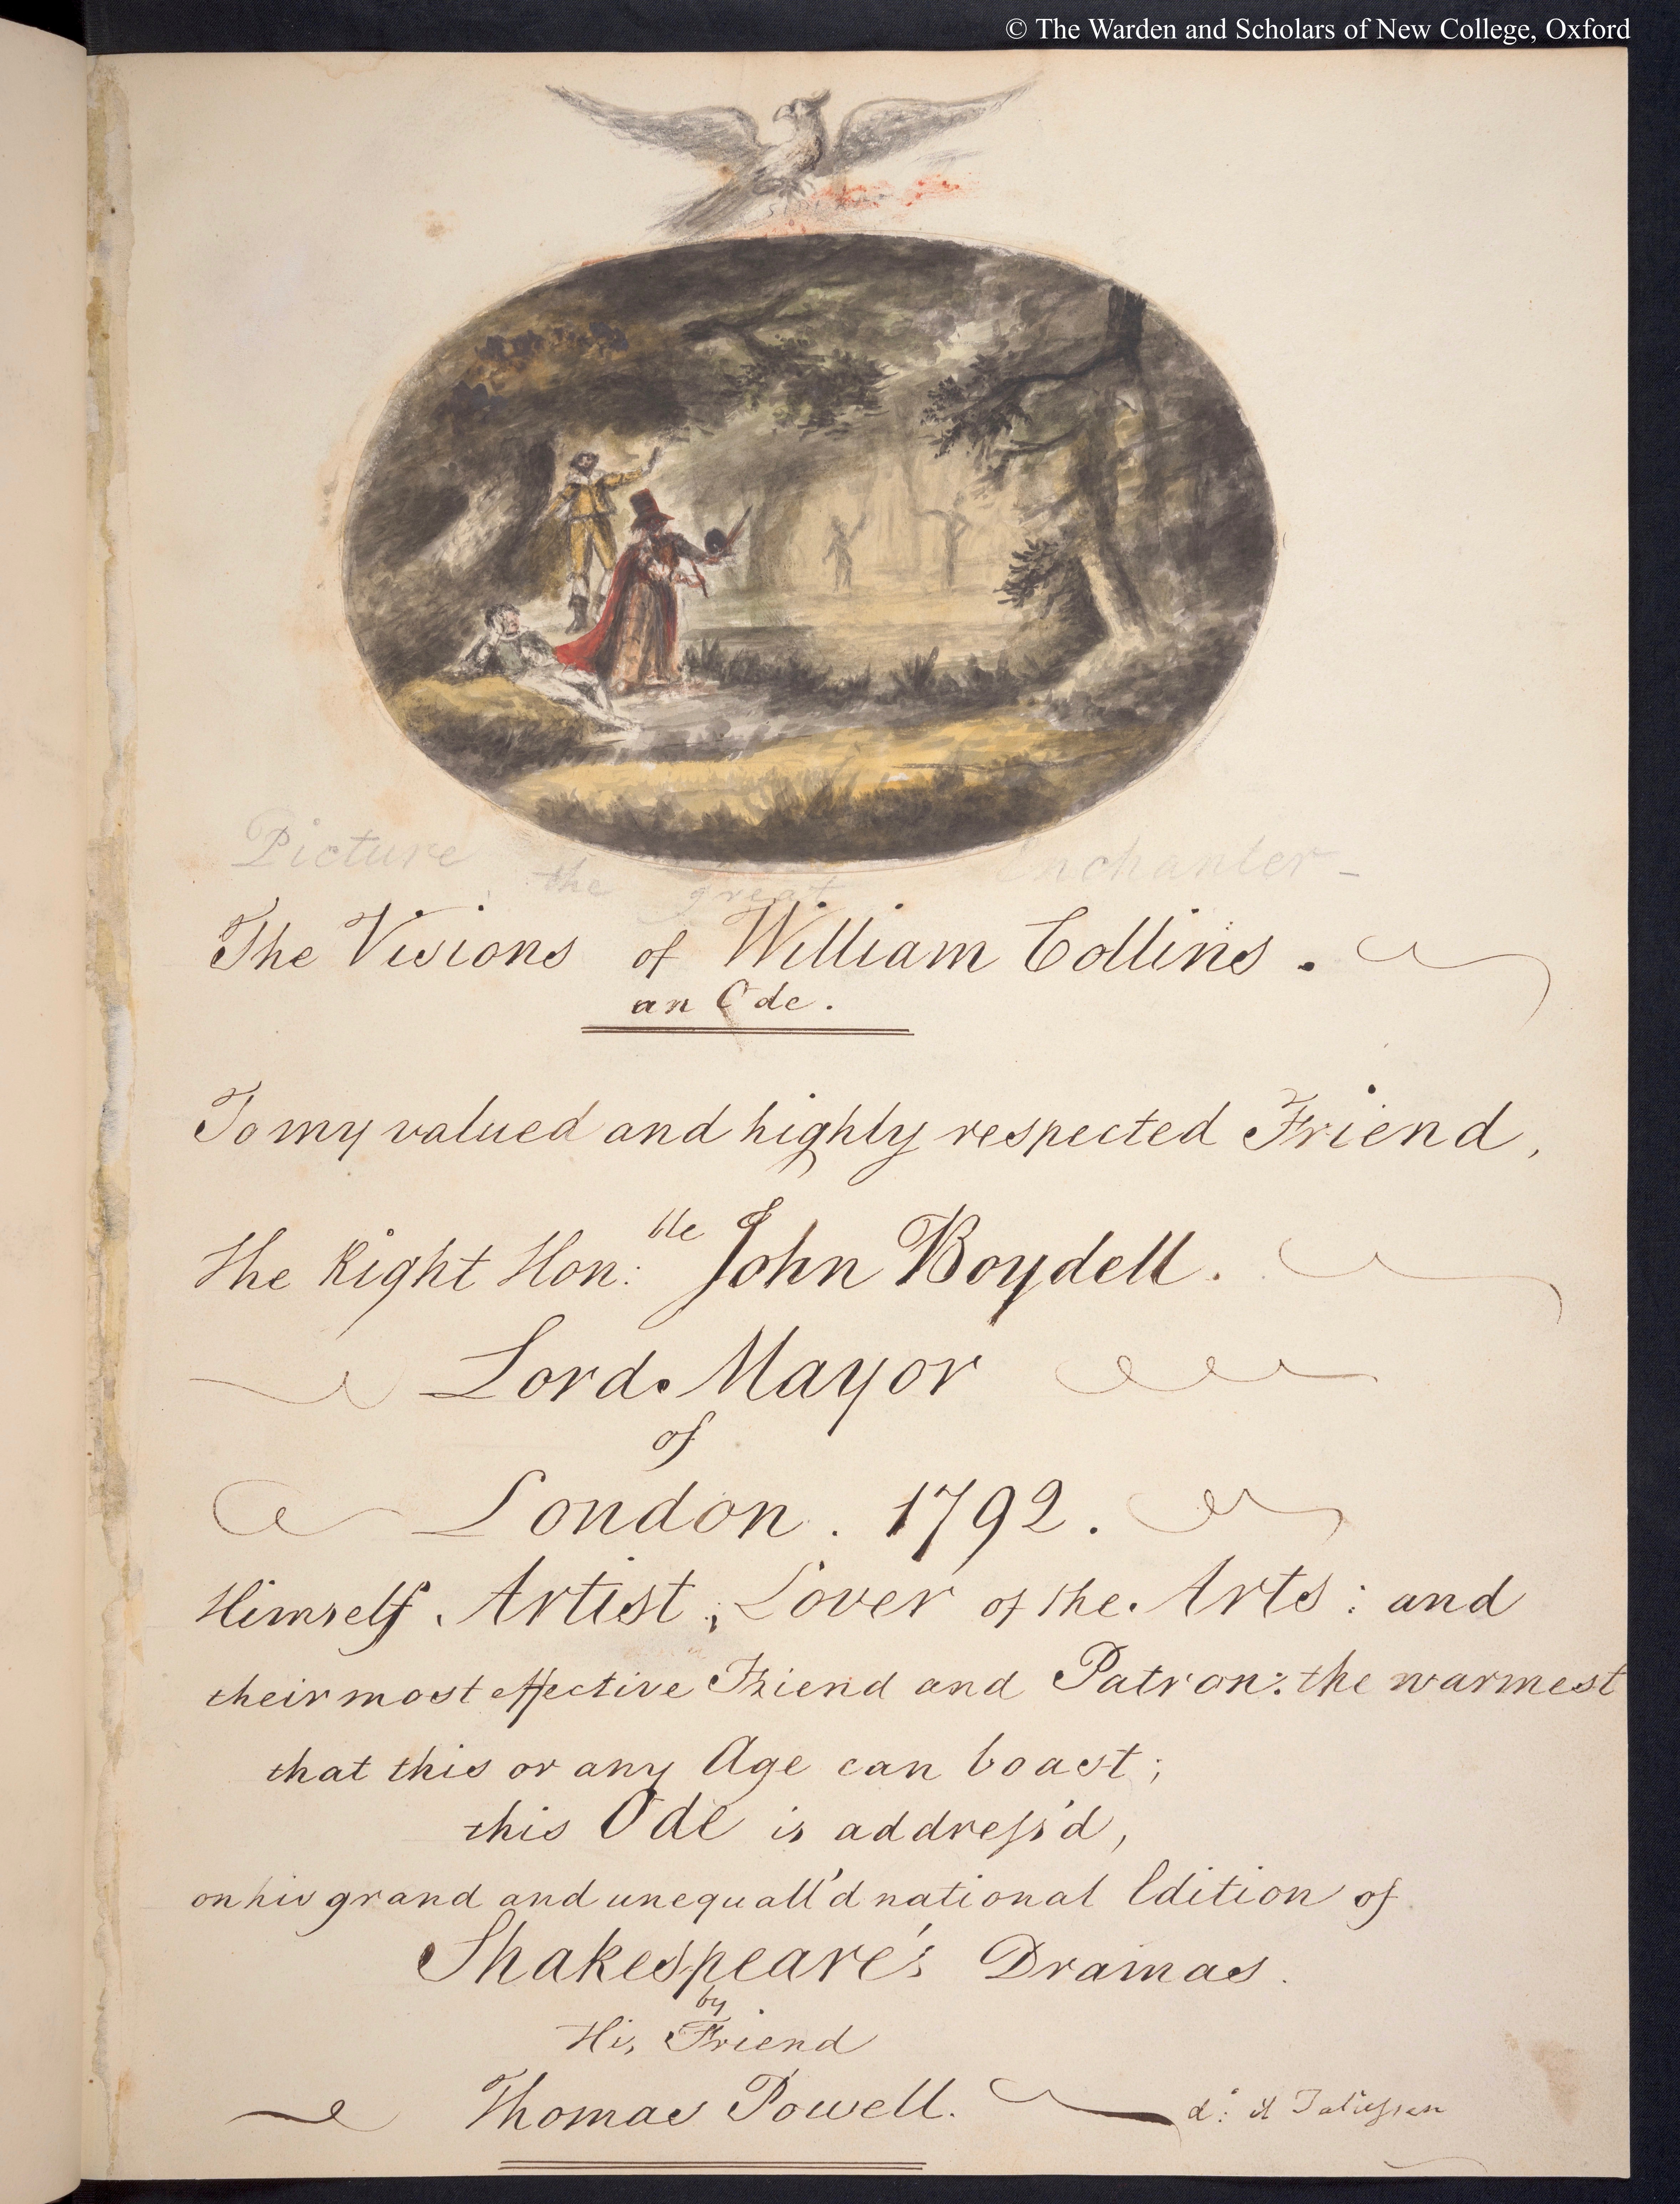 © The Warden and Scholars of New College, Oxford
Picture the great Enchanter -
The Visions of William Collins.
an Ode.
To my valued and highly respected Friend,
The Right Hon:ble John Boydell.
Lord Mayor
of
London. 1792.
Himself Artist; Lover of the Arts: and
their most effective Friend and Patron: the warmest
that this or any Age can boast;
this Ode is address'd,
on his grand and unequall'd national Edition of
Shakespeare's Dramas.
by
His Friend
Thomas Powell.